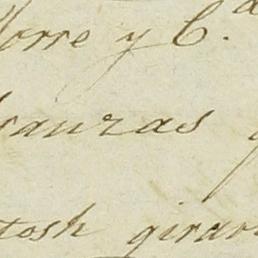 Torre y C.ª
branzas
tosh girar